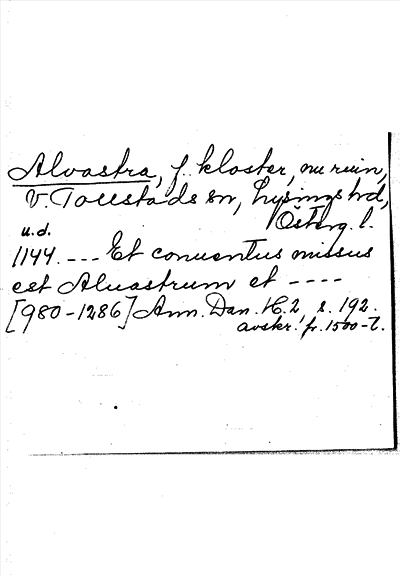 Alvastra, f. kloster, nu ruin,
V. Tollstads sn, Lysings hd,
Österg. l.
u.d.
1144. --- Et conuentus missus
est Aluastrum et ----
[980-1286] Ann. Dan. H. 2, s. 192.
avskr. fr. 1500-t.